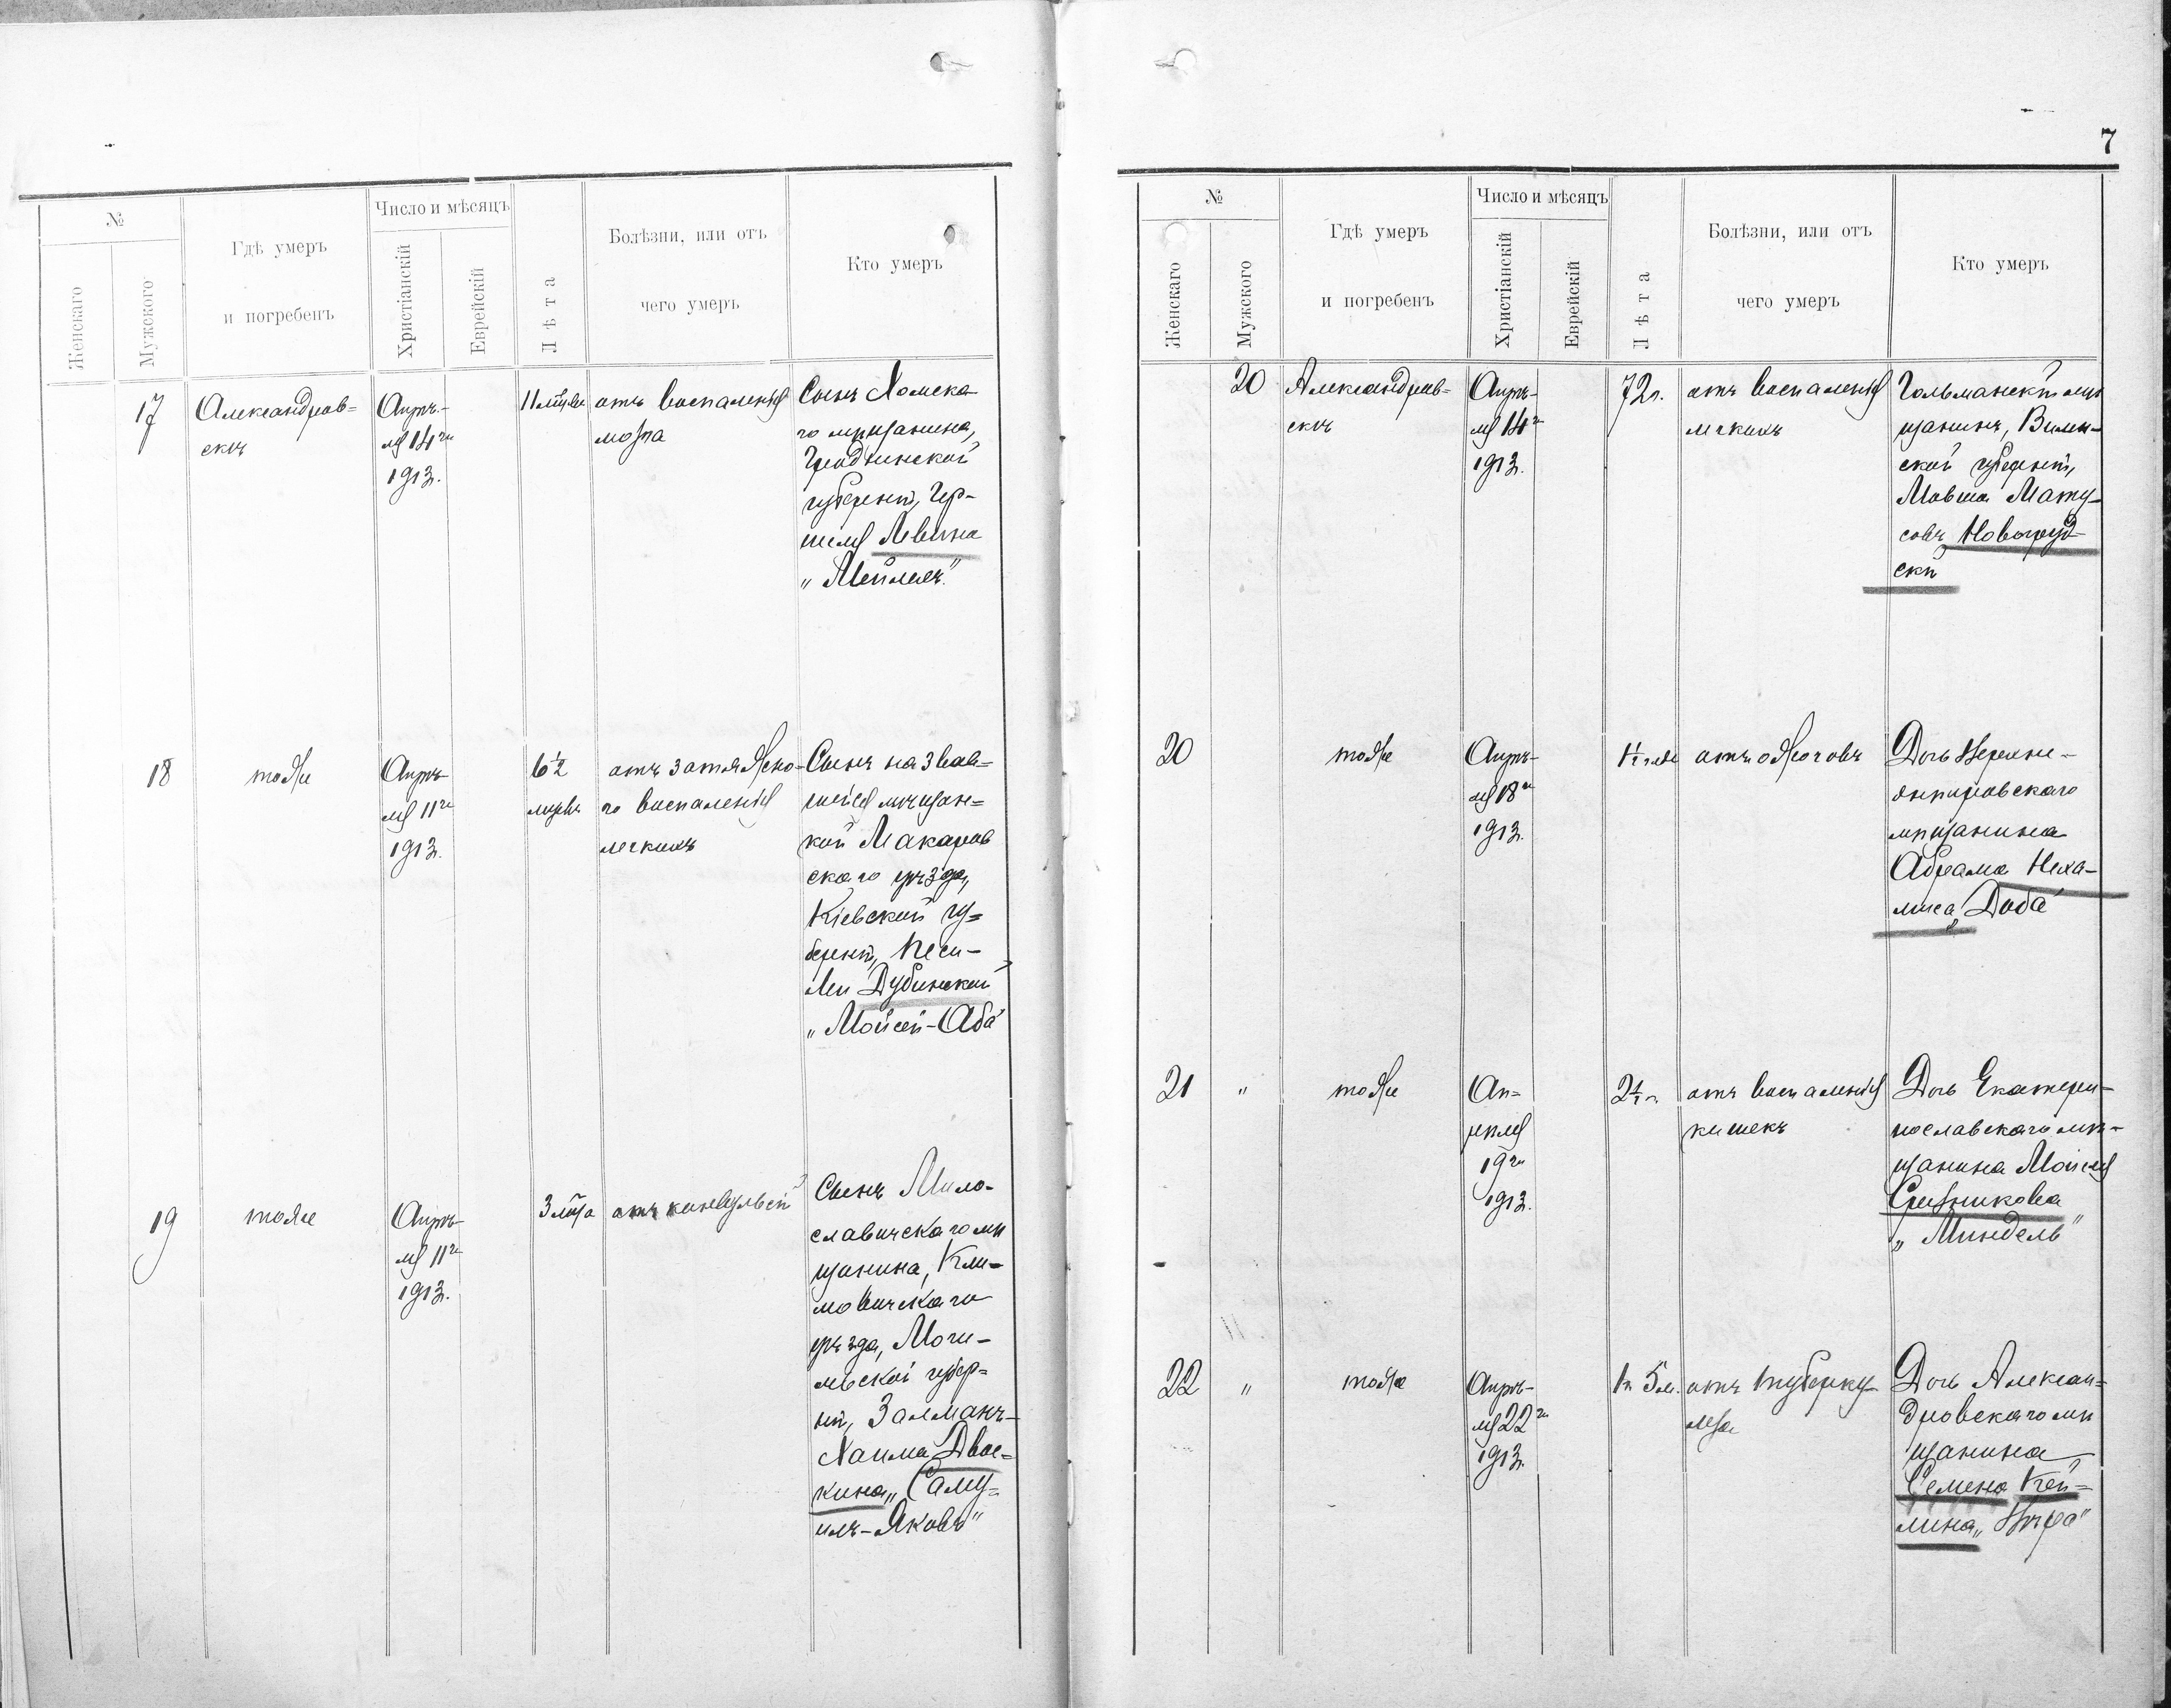 7
№
Женскаго
Мужского
Гдѣ умеръ
и погребенъ
Число и мѣсяцъ
Христіанскій
Еврейскій
Лѣта
Болѣзни, или отъ
чего умеръ
Кто умеръ
17
Александров=
скъ
Апрѣ-
ля 14го
1913.
11 мѣсяц
отъ воспаленія
мозга
Сынъ Хомска
го мѣщанина,
Гродненской
губерніи, Гер-
шеля Левина
„Мейлехъ"
18
тоже
Апрѣ-
ля 11го
1913.
6½
мѣсяц
отъ затяжно-
го воспаленія
легкихъ
Сынъ назвав=
шейся мѣщан=
кой Макаров
скаго уѣзда,
Кіевской гу=
берніи, Песи-
Леи Дубинской
„Мойсей-Аба"
19
тоже
Апрѣ-
ля 11го
1913.
3 мѣсяца
отъ конвульсій
Сынъ Мило-
славичскаго мѣ
щанина, Кли-
мовичскаго
уѣзда, Моги-
левской губер=
ніи, Залманъ-
Хаима Двос=
кина, „Саму=
илъ-Яковъ"
№
Женскаго
Мужского
Гдѣ умеръ
и погребенъ
Число и мѣсяцъ
Христіанскій
Еврейскій
Лѣта
Болѣзни, или отъ
чего умеръ
Кто умеръ
20
Александров=
скъ
Апрѣ-
ля 14го
1913.
72 г.
отъ воспаленія
легкихъ
Гольманскій мѣ
щанинъ, Вилен-
ской губерніи,
Мовша Мату-
совъ Новогруд-
скій
20
тоже
Апрѣ-
ля 18го
1913.
отъ ожоговъ
Дочь Верхне-
днѣпровскаго
мѣщанина
Абрама Неха-
миса „Доба"
21
"
тоже
Ап=
рѣля
19го
1913.
отъ воспаленія
кишекъ
Дочь Екатери-
нославскаго мѣ-
щанина Мойсея
„Миндель"
22
"
тоже
Апрѣ-
ля 22го
1913.
1 г. 5 м.
отъ туберку-
леза
Дочь Алексан=
дровскаго мѣ
щанина
Семена Кей=
лина,